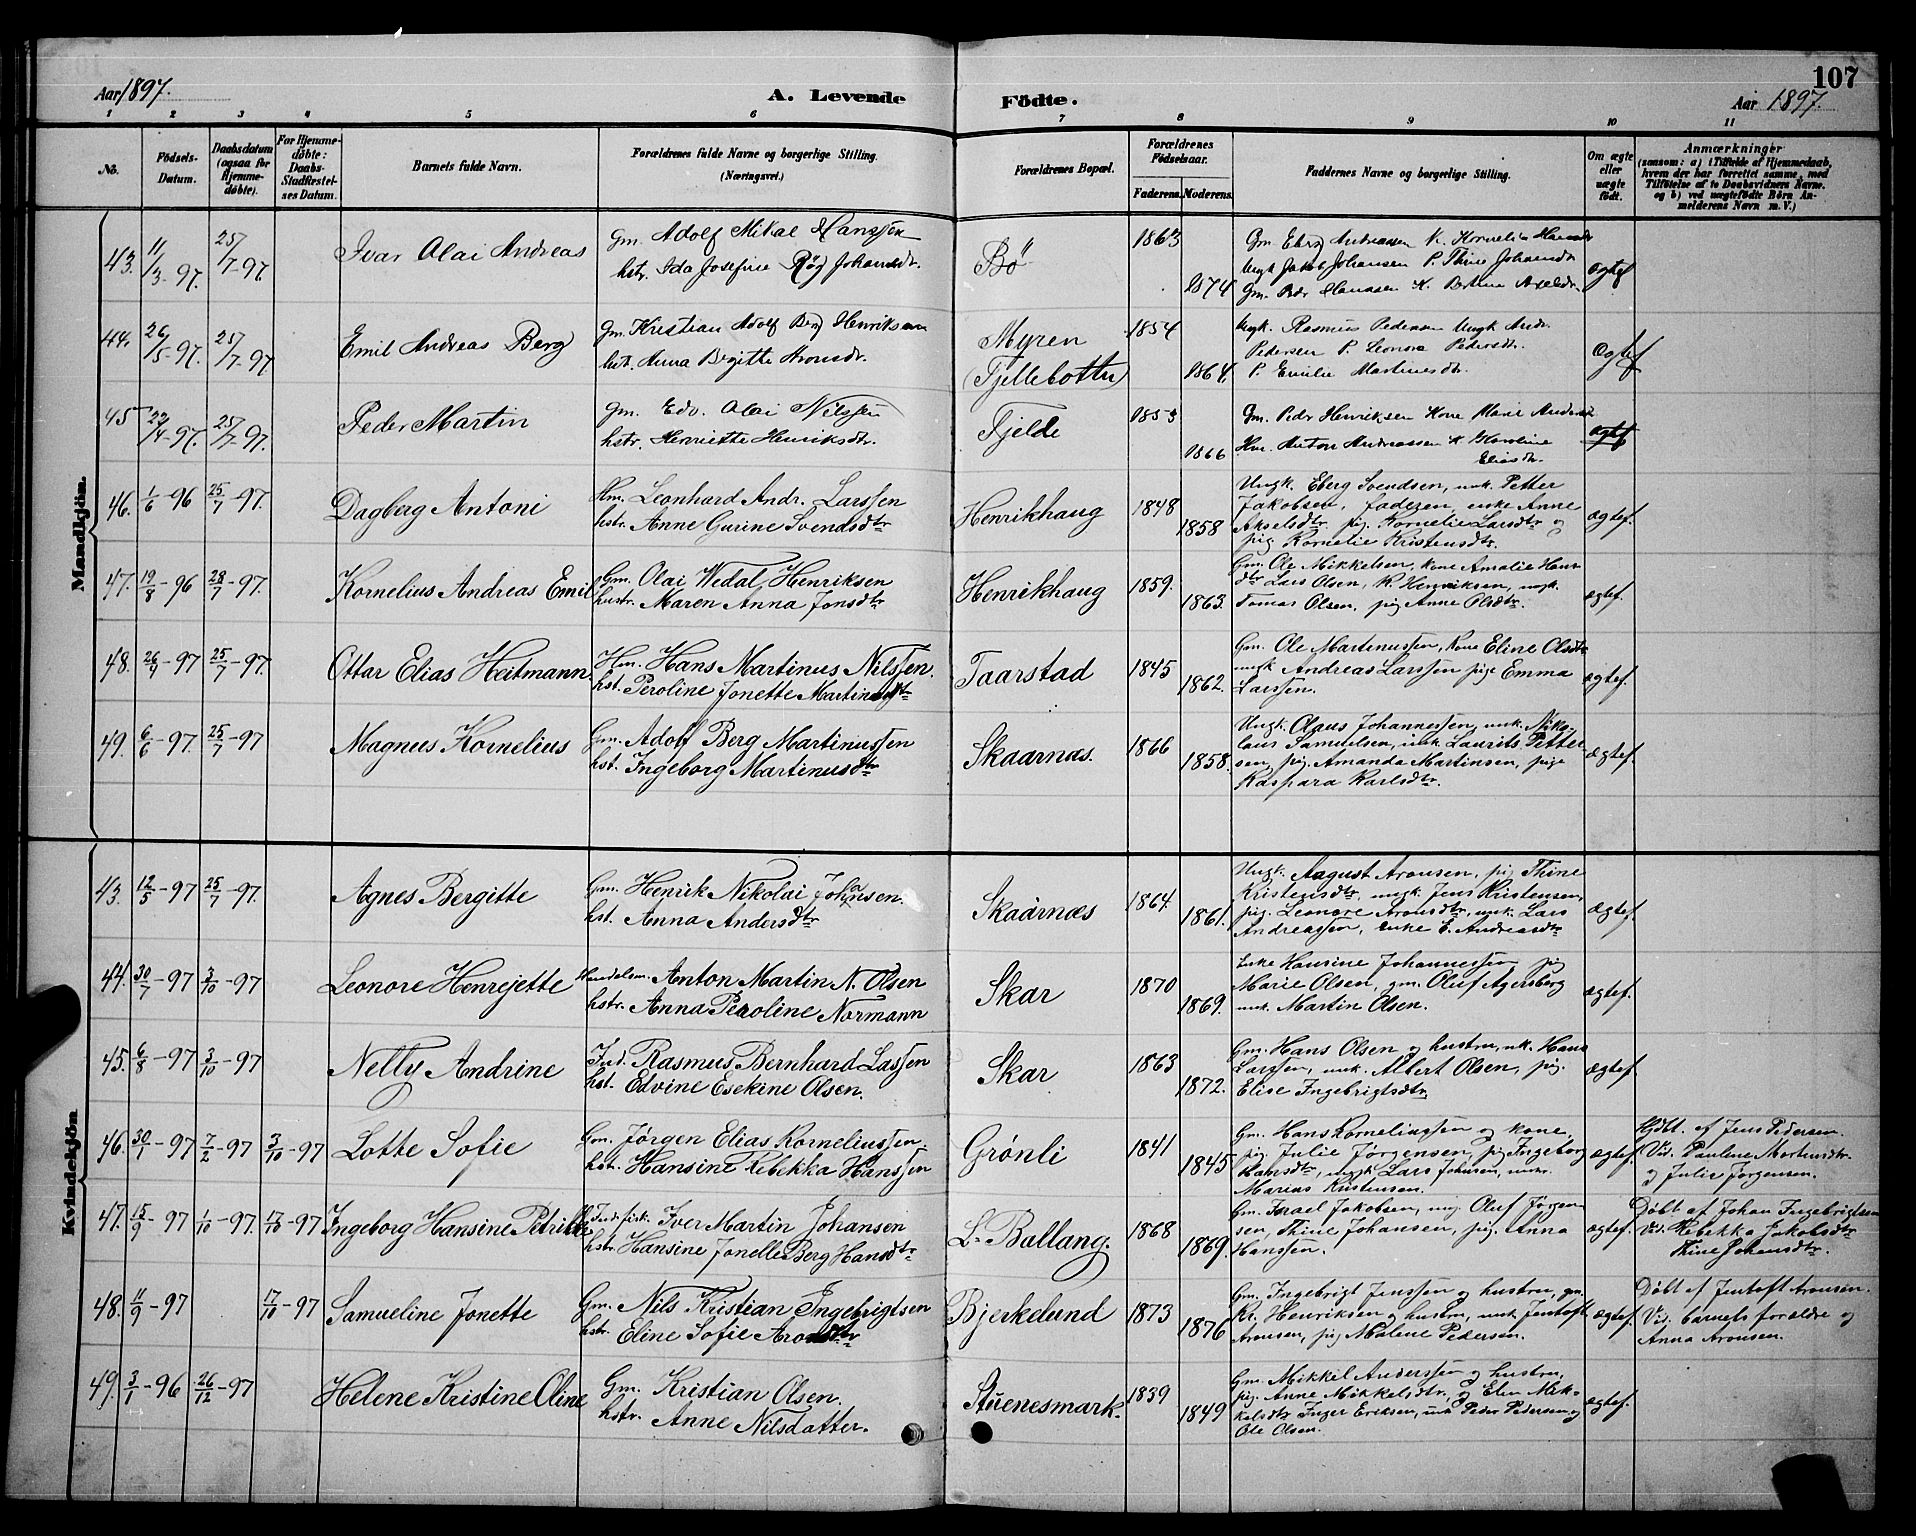 107
Aar 1897. A. Levende Födte. Aar 1897.
1 2 3 4 5 6 7 8 9 10 11
No. Födsels-Datum. Daabsdatum (ogsaa for Hjemmedöbte). For Hjemmedöbte: Daabs-Stadfæstelses Datum. Barnets fulde Navn. Forældrenes fulde Navne og borgerlige Stilling. (Næringsvei.) Forældrenes Bopæl. Forældrenes Födselsaar. Faderens. Moderens. Faddernes Navne og borgerlige Stilling. Om ægte eller uægte födt. Anmærkninger (saasom: a) i Tilfælde af Hjemmedaab, hvem der har forrettet samme, med Tilföielse af to Daabsvidners Navne, og b) ved uægtefödte Börn Anmelderens Navn m. V.)
Mandkjön.
43. 11/3-97. 25/7-97 Ivar Olai Andreas Gm. Adolf Mikal Hanssen
hstr. Ida Josefine Røg Johansdr. Bö 1863 1874
Gm. Eberg Andreassen K. Kornelia Hansdr
Ungk Jakob Johansen P. Thine Johansdr
Gm. Pedr Hanssen K. Bertine Axelsdr. ægtef
44. 26/5-97. 25/7-97 Emil Andreas Berg Gm. Kristian Adolf Berg Henriksen
hst. Anna Birgitte Aronsdr. Myren
(Fjellebotn) 1854 1864.
Ungk. Rasmus Pedersen Ungk Andr.
Pedersen P. Leonora Pedersdr.
P. Emilie Martinesdr. Ægtef
45 22/4-97. 25/7-97. Peder Martin Gm. Edv. Olai Nilssen
hstr. Henriette Henriksdr. Fjelde 1853 1866
Gm. Pedr Henriksen Kone Marie Andersdr
Hm. Anton Andreassen K Karoline
Eliasdr. ægtef
46. 1/6-96 25/7-97. Dagberg Antoni Hm. Leonhard Andr. Larssen
hstr. Anne Gurine Svendsdtr Henrikhaug 1848 1858
Ungk. Eberg Svendsen, unk. Petter
Jakobsen, faderen, enke Anne
Akselsdtr. pig. Kornelie Larsdtr og
pig Kornelie Kristensdtr. ægtef.
47. 19/8-96 28/7-97. Kornelius Andreas Emil Gm. Olai Wedal Henriksen
hustr. Maren Anna Jonsdtr Henrikhaug 1859. 1863.
Gm. Ole Mikkelsen, kone Amalie Hans
dtr Lars Olsen, K. Henriksen, ungk.
Tomas Olsen, pig Anne Olsdtr. ægtef.
48. 26/4-97 25/7-97. Ottar Elias Heitmann. Hm. Hans Martinus Nilssen.
hst. Peroline Jonette Martinsdtr Taarstad 1845 1862.
Gm. Ole Martinussen, Kone Eline Olsdtr
ungk Andreas Larssen pige Emma
Larssen. ægtef.
49. 6/6-97. 25/7-97 Magnus Kornelius Gm. Adolf Berg Martinussen
hst. Ingeborg Martinusdtr Skaarnæs. 1866 1858.
Ungk. Olaus Johannessen, unk. Niko,
laus Samuelsen, unk Laurits Petter
sen, pig. Amanda Martinsen, pige
Kaspara Karlsdtr. Ægtef.
Kvindekjön
43. 12/5-97 25/7-97. Agnes Bergitte Gm. Henrik Nikolai Johansen.
hst. Anna Andersdtr Skaarnæs 1864. 1861.
Ungk. August Aronsen, pig Thine
Kristensdtr, ungk. Jens Kristensen,
pig. Leonore Aronsdtr, unk. Lars
Andreassen, enke E. Andreasdtr Ægtef.
44. 30/7-97 3/10-97 Leonore Henrejette Handelsm. Anton Martin N. Olsen
hstr. Anna Peroline Normann Skar 1870 1869.
Enke Hansine Johannessen pig
Marie Olsen, gm. Oluf Agersborg
unk. Martin Olsen. ægtef.
45. 6/8-97 3/10-97 Nelly Andrine Ind. Rasmus Bernhard Lassen
hst. Edvine Esekine Olsen. Skar 1863 1872.
Gm. Hans Olsen og hustru, unk. Hans
Larssen, unk. Albert Olsen, pig.
Elise Ingebrigtsdtr. Ægtef.
46. 30/1-97 7/2-97 3/10-97 Lotte Sofie Gm. Jørgen Elias Korneliussen.
hst. Hansine Rebekka Hanssen Grønli 1841 1845
Gm. Hans Korneliussen og kone,
pig. Julie Jørgensen, pig Ingeborg
Hansdtr, ungk Lars Johnsen, unk.
Marius Kristensen. ægtef.
Hjdbt. af Jens Pedersen.
Vid. Pauline Mortensdtr
og Julie Jørgensen.
47. 15/9-97 1/10-97. 17/10-97 Ingeborg Hansine Petrikke Ind. fisk. Iver Martin Johansen
hstr. Hansine Jonelle Berg Hansdtr L. Ballang. 1868 1869.
Gm. Israel Jakobsen, ung. Oluf Jørgen
sen, Thine Johansen, pig. Anna
Hanssen. ægtef.
Døbt af Johan Ingebrigtsen
Vid. Rebekka Jakobsdtr
Thine Johansdtr.
48. 11/9-97 17/10-97 Samueline Jonette Gm. Nils Kristian Ingebrigtsen
hstr. Eline Sofie Aronsdtr Bjerkelund 1873 1876
Gm. Ingebrigt Jenssen og hustru, gm.
Kr. Henriksen og hustru, unk Jentoft
Aronsen, pig Malene Pedersen. Ægtef.
Døbt af Jentoft Aronsen.
Vid. barnets forældre og
Anna Aronsen.
49. 3/1-96 26/12-97 Helene Kristine Oline Gm. Kristian Olsen.
hstr. Anne Nilsdatter. Stuenesmark. 1839 1849
Gm. Mikkel Anderssen og hustru,
pig. Anne Mikkelsdtr, og Elen Mik-
kelsdtr Inger Eriksen, unk Peder Pedersen og
Ole Olsen. ægtef.